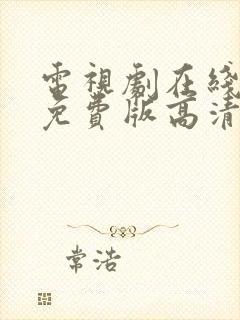 電視劇在綫
免費版高清
常浩